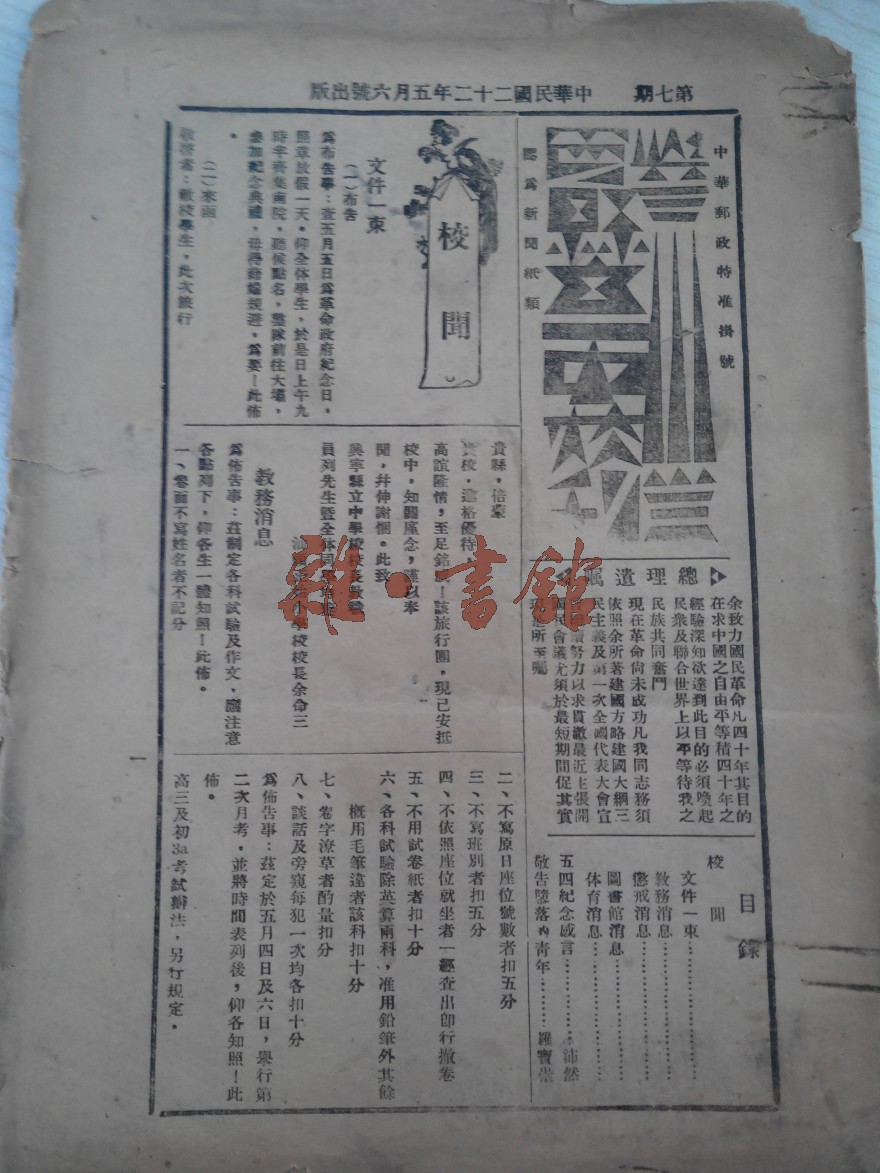 第七期 中華民國二十二年五月六號出版
中華郵政特准掛號
認爲新聞紙類
總理遺囑
余致力國民革命凡四十年其目的
在求中國之自由平等積四十年之
經驗深知欲達到此目的必須喚起
民衆及聯合世界上以平等待我之
民族共同奮鬥
現在革命尚未成功凡我同志務須
依照余所著建國方略建國大綱三
民主義及第一次全國代表大會宣
繼續努力以求貫澈最近主張開
國民會議尤須於最短期間促其實
現是所至囑
目錄
校聞
文件一束
教務消息
懲戒消息
圖書館消息
体育消息
五四紀念感言 沛然
敬告墮落的青年 羅寶崇
校聞
文件一束
（一）布告
爲布告事：查五月五日爲革命政府紀念日，
照章放假一天。仰全体學生，於是日上午九
時半齊集南院，聽候點名，整隊前往大壩，
參加紀念典禮，毋得藉端規避，爲要！此佈
。
（二）來函
敬啓者：敝校學生，此次旅行
貴縣，信蒙
貴校，逾格優待，
高誼隆情，至足銘！該旅行團，現已安抵
校中，知關廑念，謹以奉
聞，幷伸謝悃。此致
興寧縣立中學校校長
員列先生暨全体同學
小學校校長余命三
教務消息
爲佈告事：茲制定各科試驗及作文，應注意
各點列下，仰各生一體知照！此佈。
一、卷面不寫姓名者不記分
二、不寫原日座位號數者扣五分
三、不寫班別者扣五分
四、不依照座位就坐者一經查出卽行撤卷
五、不用試卷紙者扣十分
六、各科試驗除英算兩科，准用鉛筆外其餘
槪用毛筆違者該科扣十分
七、卷字潦草者酌量扣分
八、談話及旁窺每犯一次均各扣十分
爲佈告事：茲定於五月四日及六日，舉行第
二次月考，並將時間表列後，仰各知照！此
佈。
高三及初3a考試辦法，另行規定。
一
雜·書館